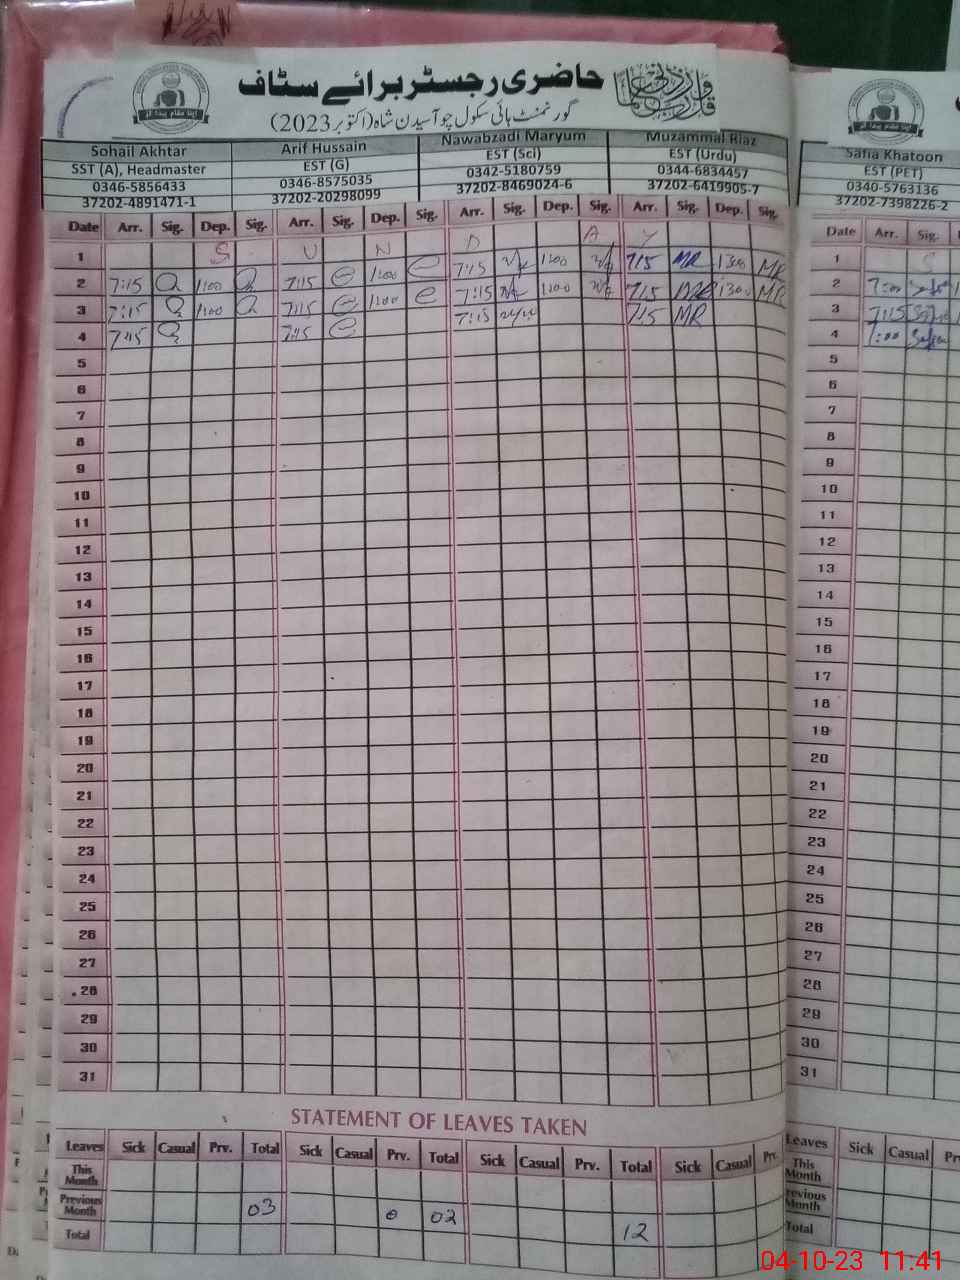 حاضری رجسٹر برائے سٹاف
گورنمنٹ ہائی سکول چوآسیدن شاہ (اکتوبر 2023)
اپنا مقام پیدا کر
Sohail Akhtar Arif Hussain Nawabzadi Maryum Muzammal Riaz Safia Khatoon
SST (A), Headmaster EST (G) EST (Sci) EST (Urdu) EST (PET)
0346-5856433 0346-8575035 0342-5180759 0344-6834457 0340-5763136
37202-4891471-1 37202-20298099 37202-8469024-6 37202-6419905-7 37202-7398226-2
Date Arr. Sig. Dep. Sig. Arr. Sig. Dep. Sig. Arr. Sig. Dep. Sig. Arr. Sig. Dep. Sig. Date Arr. Sig.
1 S U N D A Y 1 S
2 7:15 1:00 7:15 1:00 7:15 1:00 7:15 MR 1300 MR 2 7:00
3 7:15 1:00 7:15 1:00 7:15 1:00 7:15 MR 1300 MR 3 7:15
4 7:15 7:15 7:15 7:15 MR 4 7:00
5 5
6 6
7 7
8 8
9 9
10 10
11 11
12 12
13 13
14 14
15 15
16 16
17 17
18 18
19 19
20 20
21 21
22 22
23 23
24 24
25 25
26 26
27 27
28 28
29 29
30 30
31 31
STATEMENT OF LEAVES TAKEN
Leaves Sick Casual Prv. Total Sick Casual Prv. Total Sick Casual Prv. Total Sick Casual Prv. Leaves Sick Casual
This Month This Month
Previous Month 03 0 02 Previous Month
Total 12 Total
04-10-23 11:41